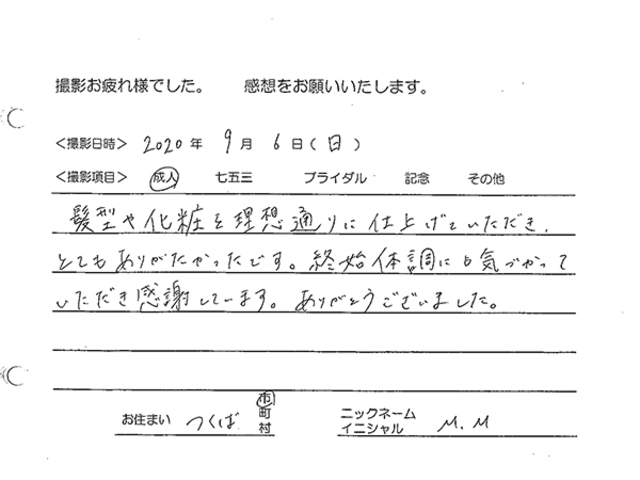 撮影お疲れ様でした。 感想をお願いいたします。
<撮影日時> 2020年 9月 6日(日)
<撮影項目> 成人 七五三 ブライダル 記念 その他
髪型や化粧を理想通りに仕上げていただき、
とてもありがたかったです。終始体調にも気づかって
いただき感謝しています。ありがとうございました。
お住まい つくば 市町村
ニックネーム イニシャル M.M